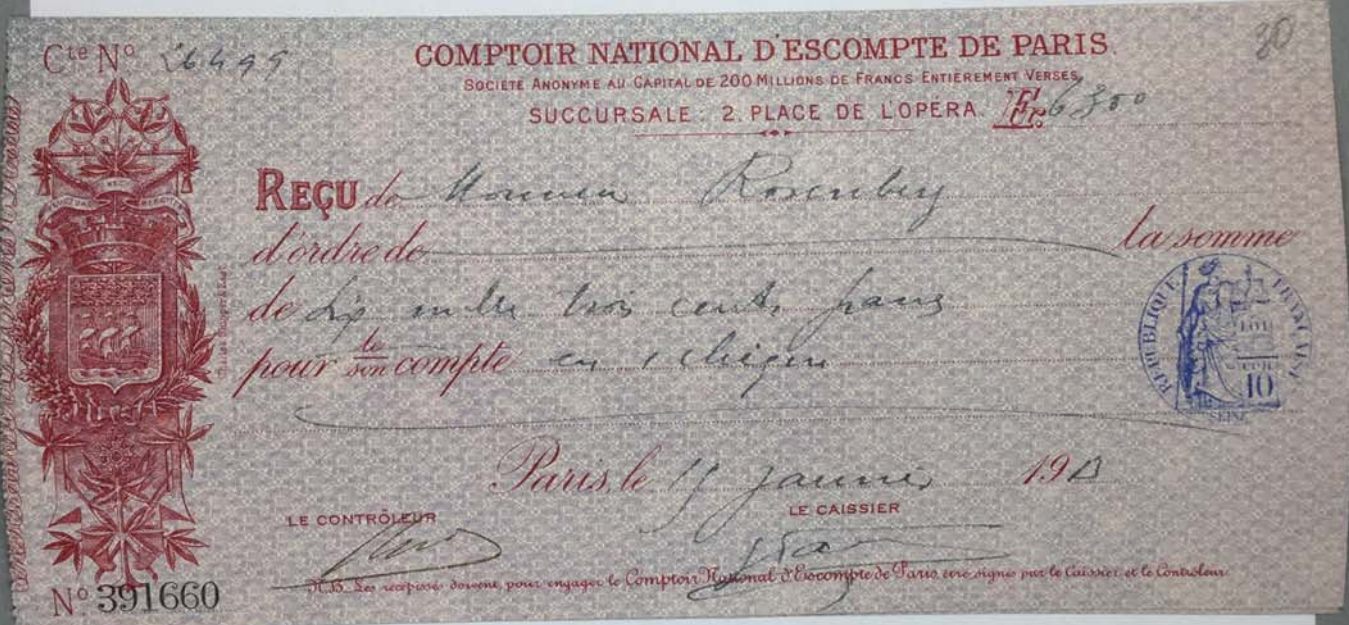 Cte No 26499
30
COMPTOIR NATIONAL D'ESCOMPTE DE PARIS
SOCIÉTÉ ANONYME AU CAPITAL DE 200 MILLIONS DE FRANCS ENTIÈREMENT VERSÉS
SUCCURSALE : 2. PLACE DE L'OPÉRA. Fr. 6300
REÇU de Monsieur Rosenberg
d'ordre de la somme
de Six mille trois cents francs
pour le son compte en 1 chèque
RÉPUBLIQUE FRANÇAISE
10
SEINE
Paris, le janvier 1913
LE CONTRÔLEUR
LE CAISSIER
N.B. Les récépissés doivent, pour engager le Comptoir National d'Escompte de Paris, être signés par le Caissier et le Contrôleur
No 391660